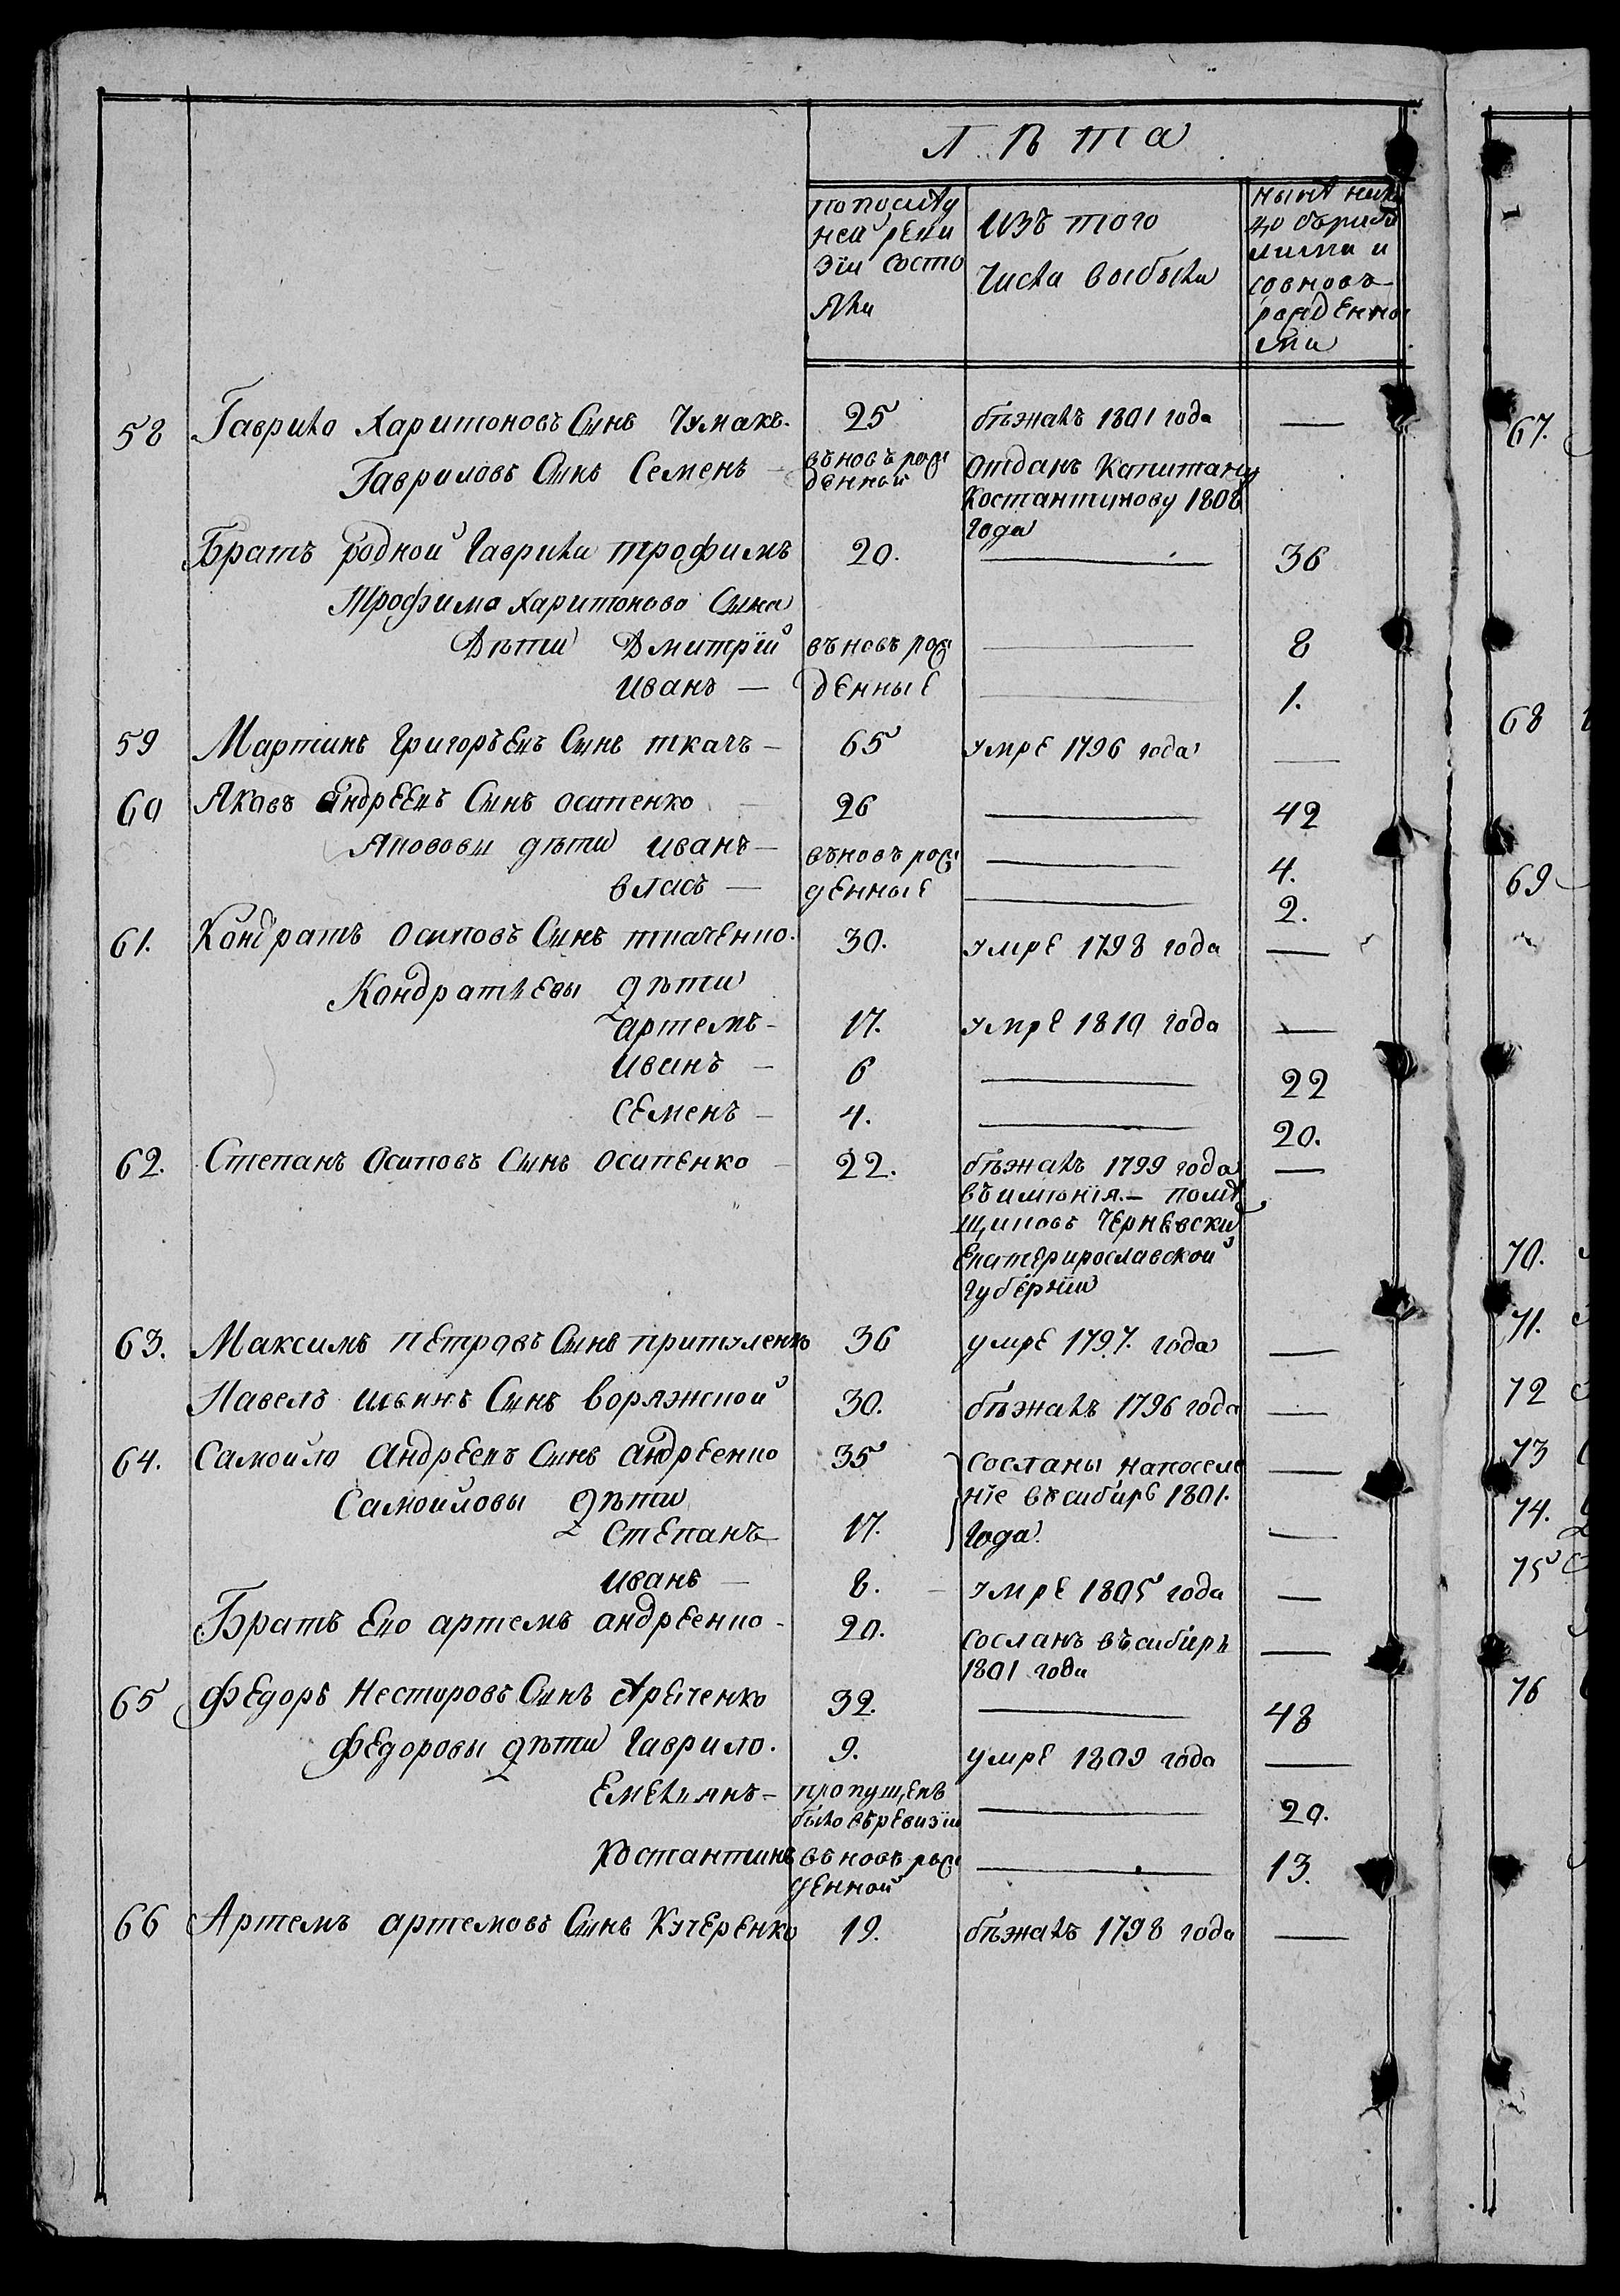 лѣта
по послѣд
ней реви
зіи состо
яли
изъ того
числа выбыли
нынѣ на
лицо съ прибы
лыми и
со вновь
рожденны
ми
58 Гаврило Харитоновъ Сынъ Чумакъ. 25 бѣжалъ 1801 года —
Гавриловъ Сынъ Семенъ — вновь рож
денной
отданъ Капитану
Костантинову 1808
года
Братъ родной Гаврилы трофимъ 20. — 36
Трофима Харитонова Сына
Дѣти Дмитрій въновь рож — 8
иванъ — денные — 1.
59 Мартинъ Григорьевъ Сынъ ткачъ — 65 умре 1796 года —
60 Яковъ андреевъ Сынъ осипенко — 26 — 42
Якововы дѣти иванъ — въновь рож — 4.
власъ — денные — 2.
61. Кондратъ осиповъ Сынъ ткаченко. 30. умре 1798 года —
Кондратьевы дѣти
артемъ — 17. умре 1810 года —
иванъ — 6 — 22
семенъ — 4. — 20.
62. Степанъ Осиповъ Сынъ осипенко — 22. бѣжалъ 1799 года —
въ имѣнія — помѣ
щиковъ Черневски
Екатеринославской
губерніи
63. Максимъ петровъ Сынъ притуленко 36 умре 1797. года —
Павелъ ильинъ Сынъ воряжской 30. бѣжалъ 1796 года —
64. Самойло андреевъ Сынъ андреенко 35 сосланы на поселе —
Самойловы дѣти
ніе въ сибирь 1801.
Степанъ 17. года. —
иванъ — 8. — умре 1805 года —
Братъ Его артемъ андреенко — 20. сосланъ въ сибирь —
1801 года
65 Федоръ Несторовъ Сынъ 32. — 48
Федоровы дѣти Гаврило. 9. умре 1809 года —
Емельянъ — пропущенъ
было въ ревизіи — 20.
Костантинъ въновь рож — 13.
денной
66 Артемъ артемовъ Сынъ Кучеренко 19. бѣжалъ 1798 года —
67.
68
69
70.
71.
72
73
74.
75
76